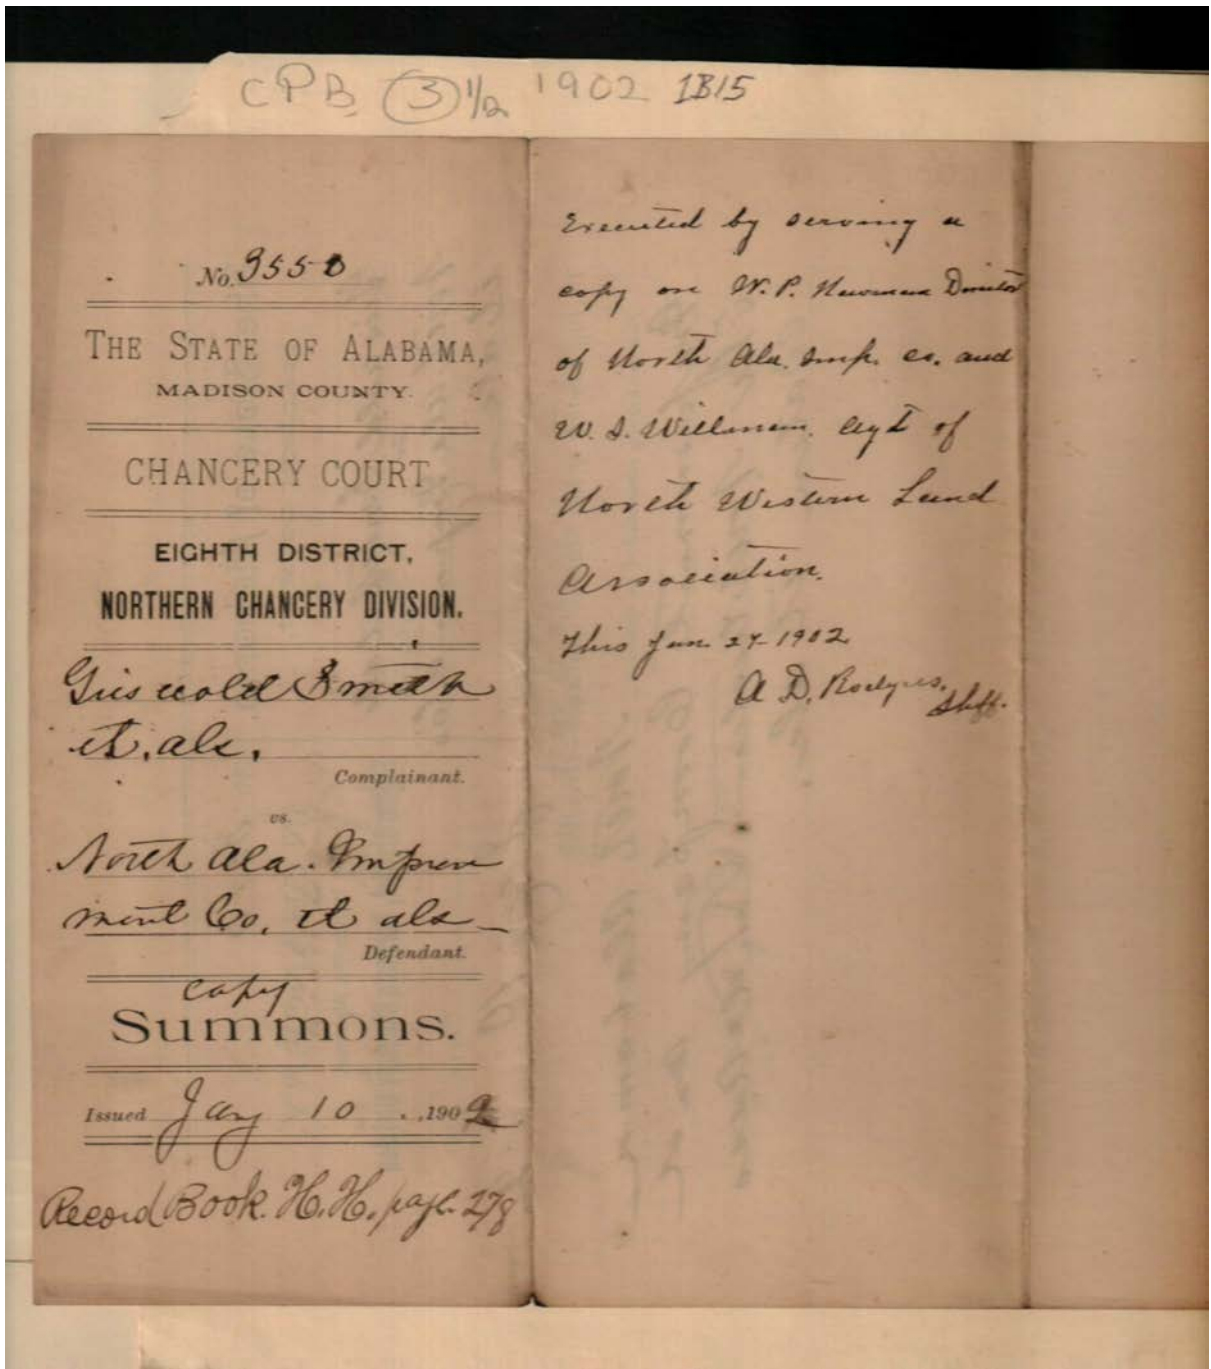 CPB (3) 1/2 1902 1B15
No. 3550
THE STATE OF ALABAMA,
MADISON COUNTY.
CHANCERY COURT
EIGHTH DISTRICT,
NORTHERN CHANCERY DIVISION.
Griswold Smith
et. als.
Complainant.
vs.
North Ala. Improve
ment Co, et als
Defendant.
copy
Summons.
Issued Jany 10 1902
Record Book. H.H. page 278
Executed by serving a
copy on W. P. Newman Director
of North Ala. Imp. co. and
W. S. Wellman. Agt of
North Western Land
Association.
This Jan. 27-1902
A. D. Rodgers.
Shff.